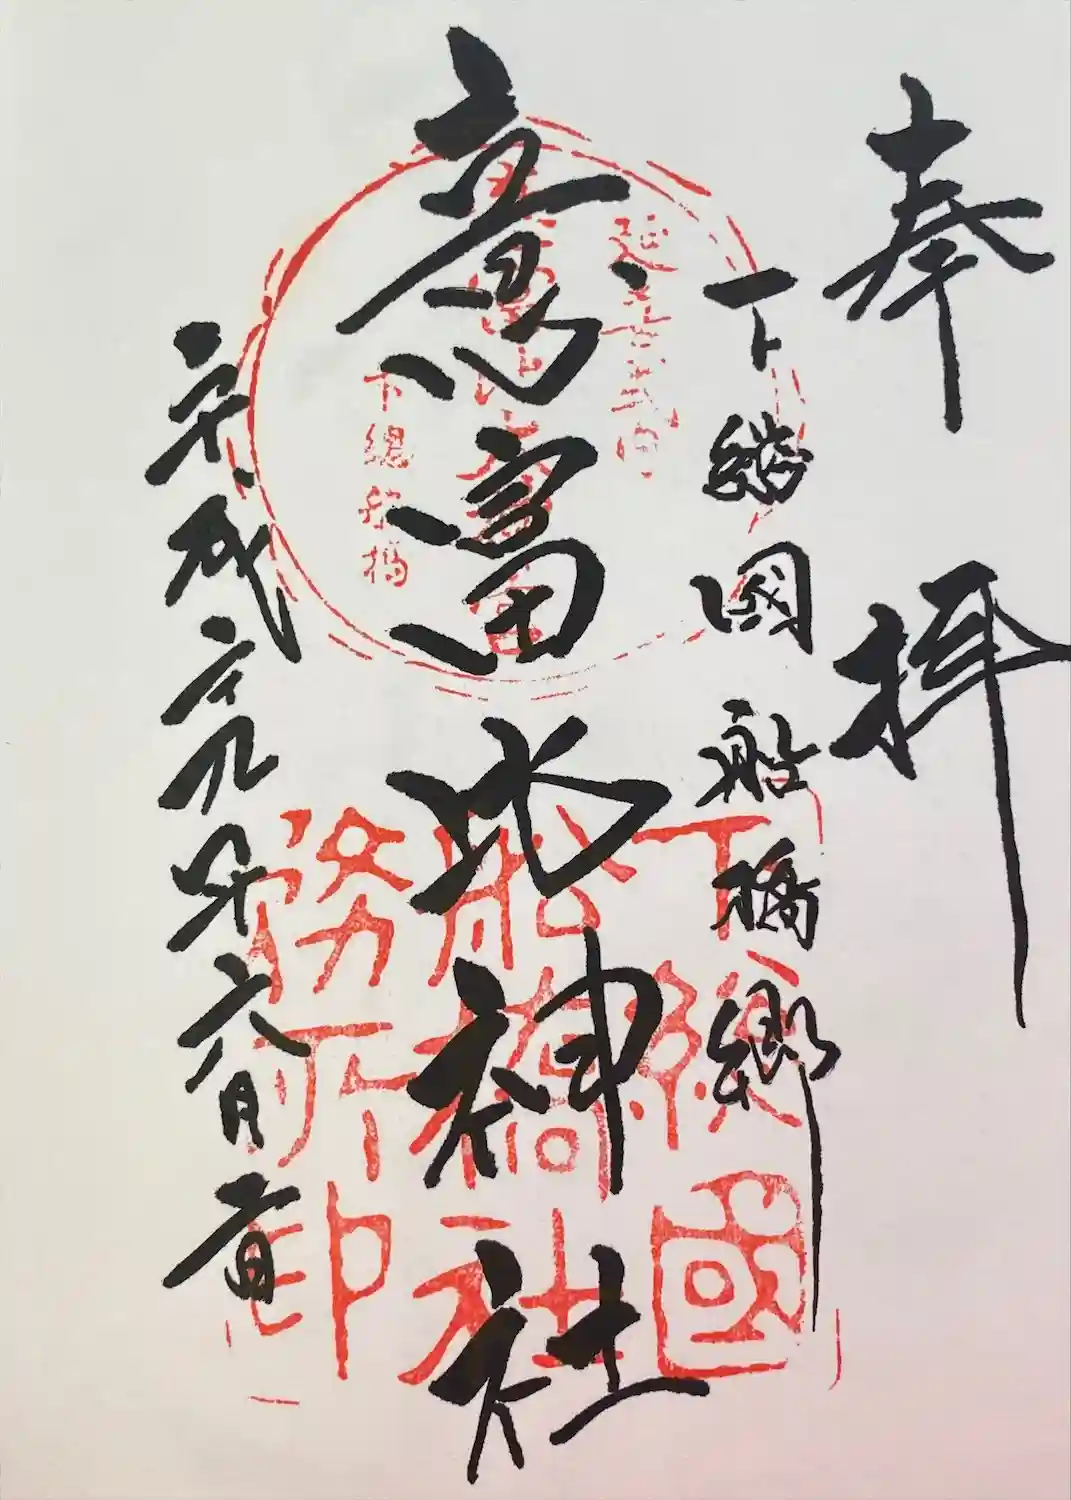 奉拝
下総國船橋郷
意富比神社
平成二九年六月
延喜式内
意富比大神宮
下總船橋
下総國
船橋社
務所印